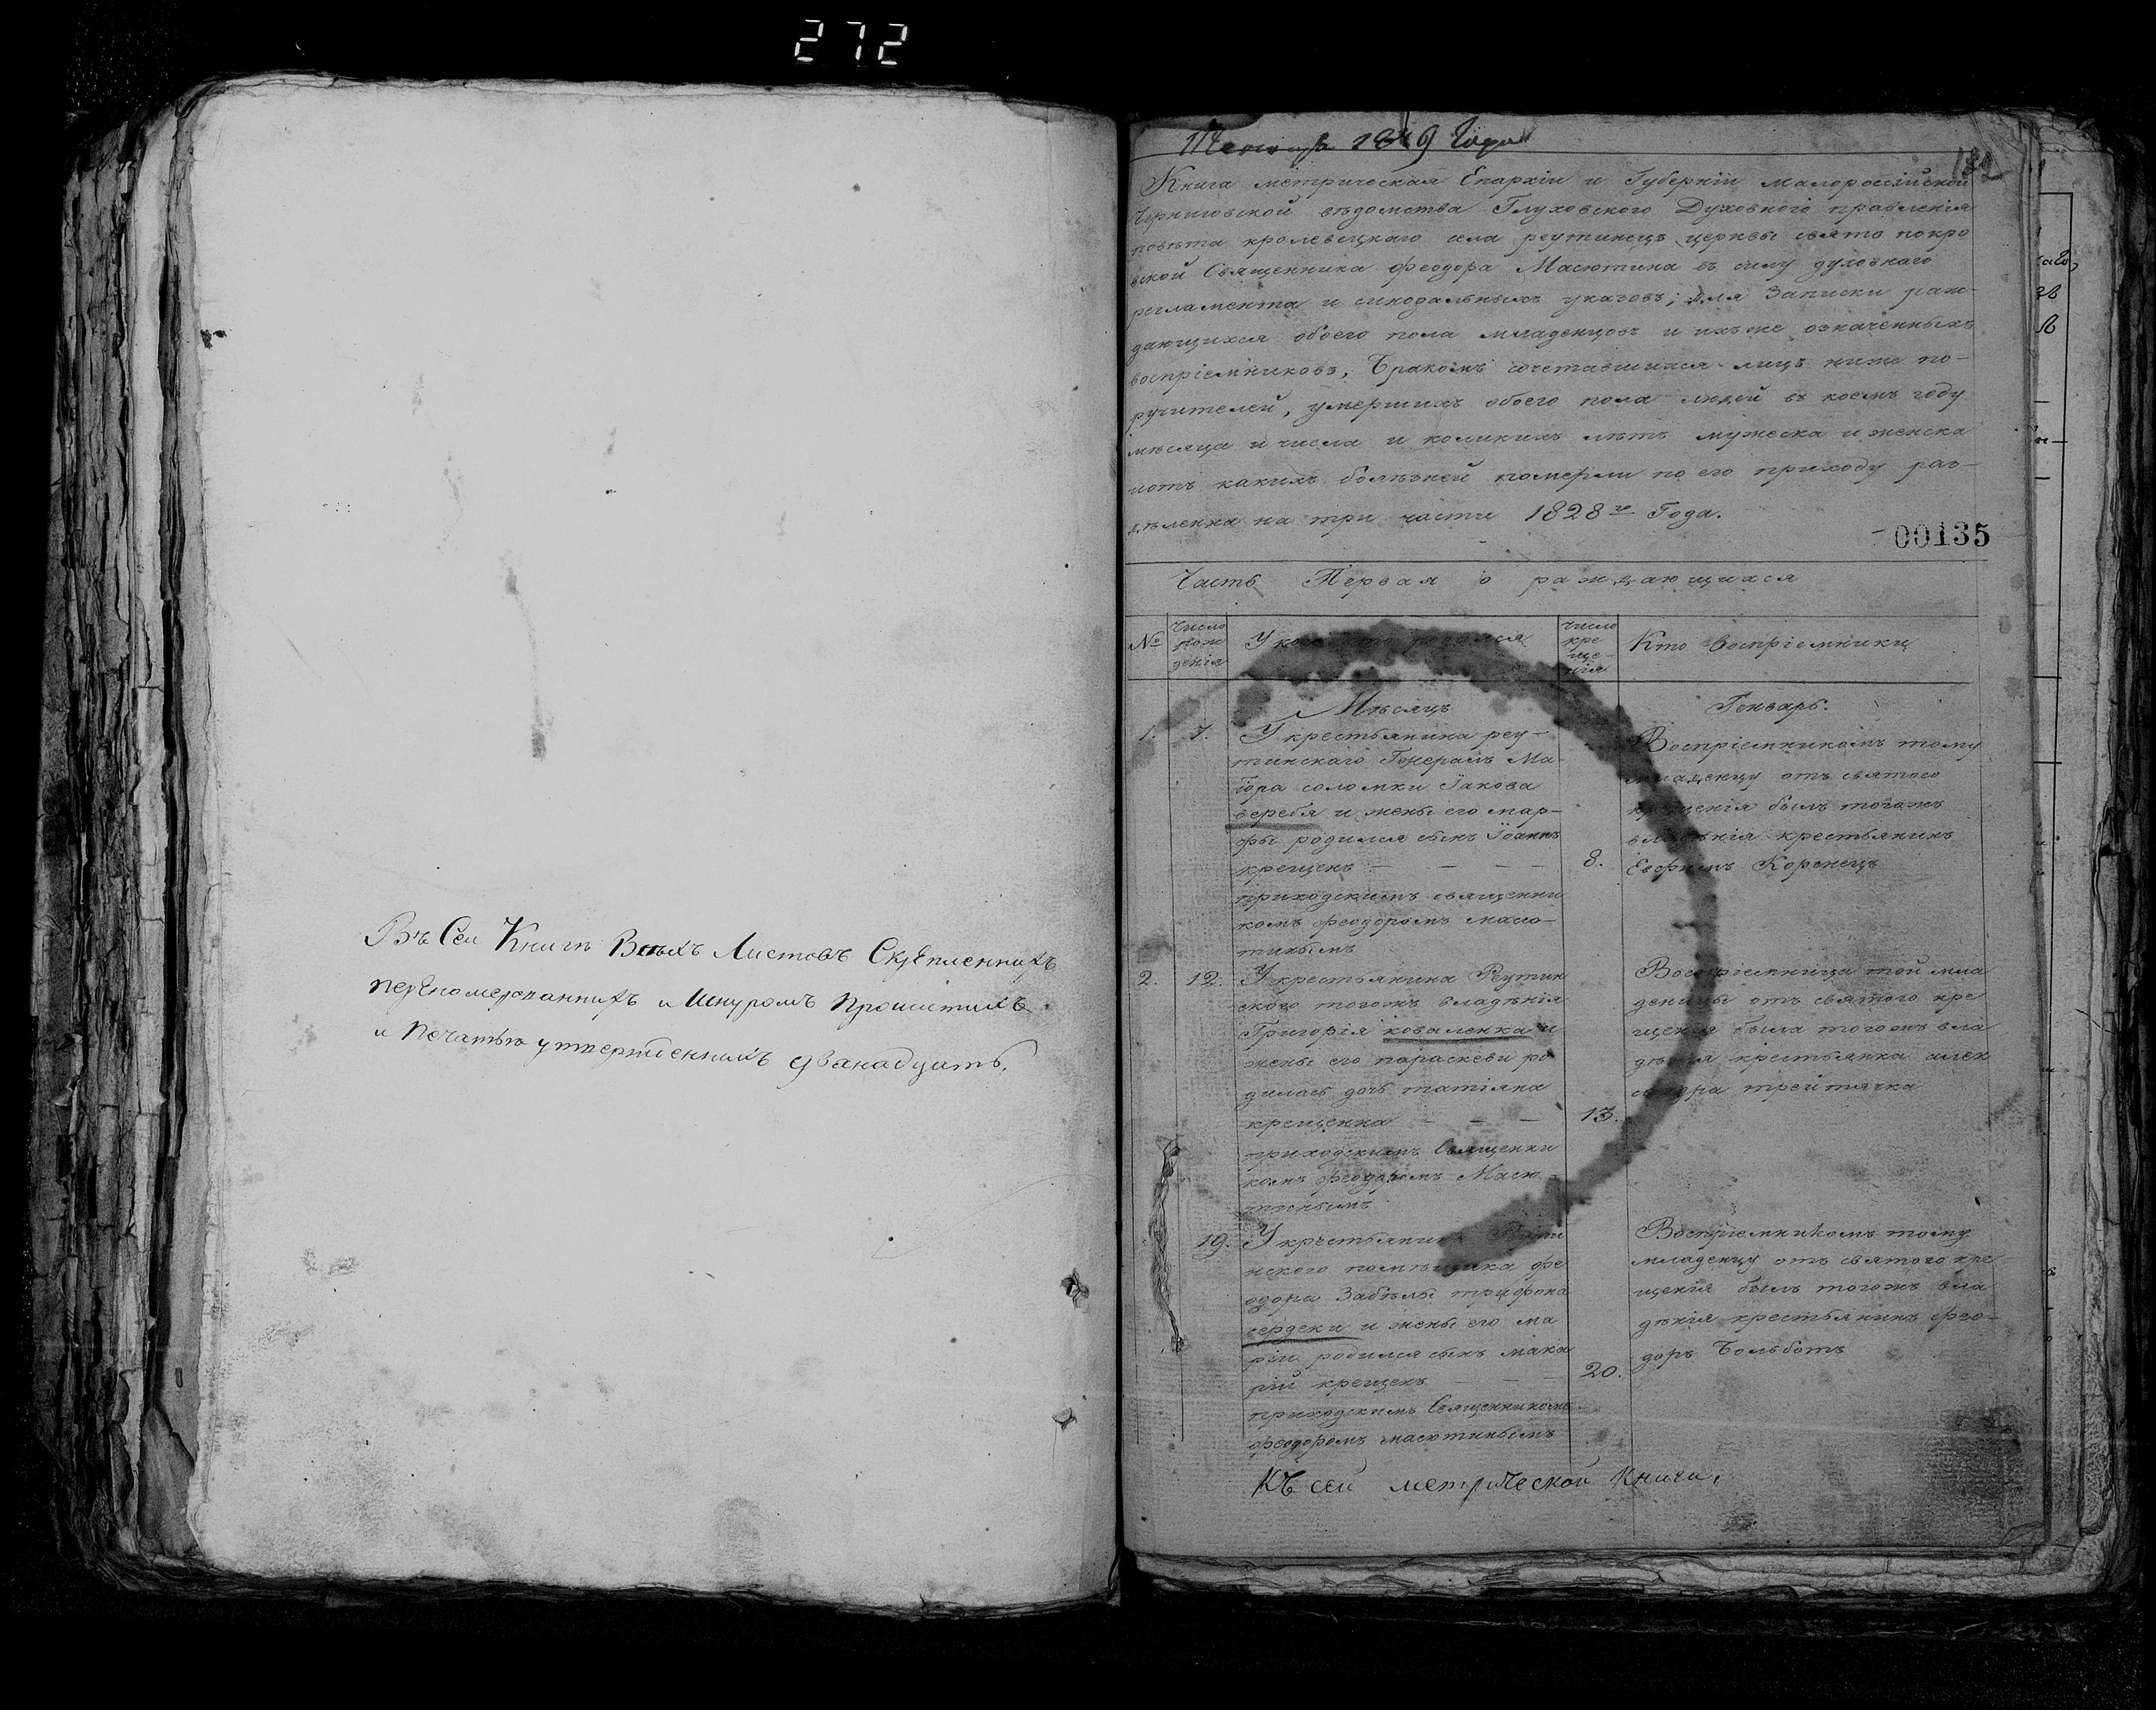 272
Въ Сеи Книгѣ Всѣхъ Листовъ Скрѣпленнихъ
перѣномерованнихъ и Шнуромъ прошитихъ
и Печатью утвержденнихъ дванадцать.
Года
Книга метрическая Епархіи и Губерніи малороссійской
Черниговской вѣдомства Глуховского Духовного правленія
повѣта кролевецкаго села реутинецъ церкви свято покро
вской Священника Феодора Масютина въ силу духовнаго
регламента и синодальныхъ указовъ, для Записки раж-
дающихся обоего пола младенцовъ и ихъ же означенныхъ
воспріемниковъ, Бракомъ сочетавшихся лицъ ниже по-
ручителей, умершихъ обоего пола людей въ коемъ году
мѣсяца и числа и коликихъ лѣтъ мужеска и женска
иотъ какихъ болѣзней померли по его приходу раз-
дѣленна на три части 1828го Года.
00135
Часть Первая о раждающихся
№
Число рож денія
У кого кто родился
Число кре ще- нія
Кто Воспріемники
Мѣсяцъ
Генварь.
1. 7. У крестьянина реу-
тинскаго Генералъ Ма-
іора соломки Іакова
веребя и жены его мар-
фы родился сынъ Іоаннъ
крещенъ — — — — 8.
приходскимъ священни
комъ феодоромъ масю-
тинымъ
Воспріемникомъ тому
младенцу отъ святого
крещенія былъ тогожъ
владѣнія крестьянинъ
Евфимъ Коренецъ
2. 12. У крестьянина Рутин
ского тогожъ владѣнія
Григорія коваленка и
жены его параскеви ро
дилась дочь татіяна
крещенна — — — 13.
приходскимъ Священни
комъ феодоромъ Масю-
тинымъ
Воспріемница той мла
деницы отъ святого кре
щенія была тогожъ вла
дѣнія крестьянка алек
сандра трейтячка
19. У крестьянина Рути
нского помѣщика фе
одора Забѣлы трифона
сердеки и жены его ма
ріи родился сынъ мака
рій крещенъ — — — 20.
приходскимъ Священникомъ
феодоромъ масютинымъ
Воспріемникомъ тому
младенцу отъ святого кре
щенія былъ тогожъ вла
дѣнія крестьянинъ фео-
доръ Больботъ
Къ сей метрической Книги,